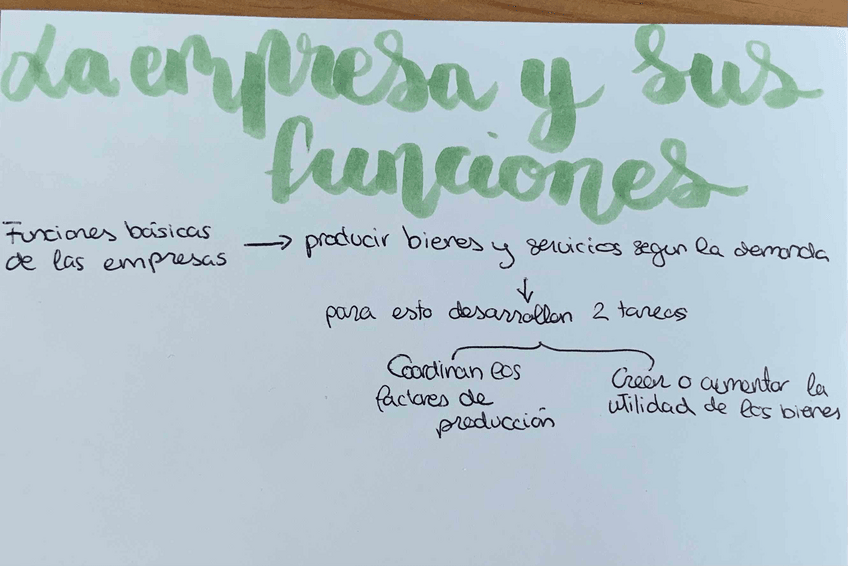 La empresa y sus
funciones
Funciones básicas
de las empresas → producir bienes y servicios segun la demanda
↓
para esto desarrollan 2 tareas
Coordinan los
factores de
producción
Crean o aumentar la
utilidad de los bienes